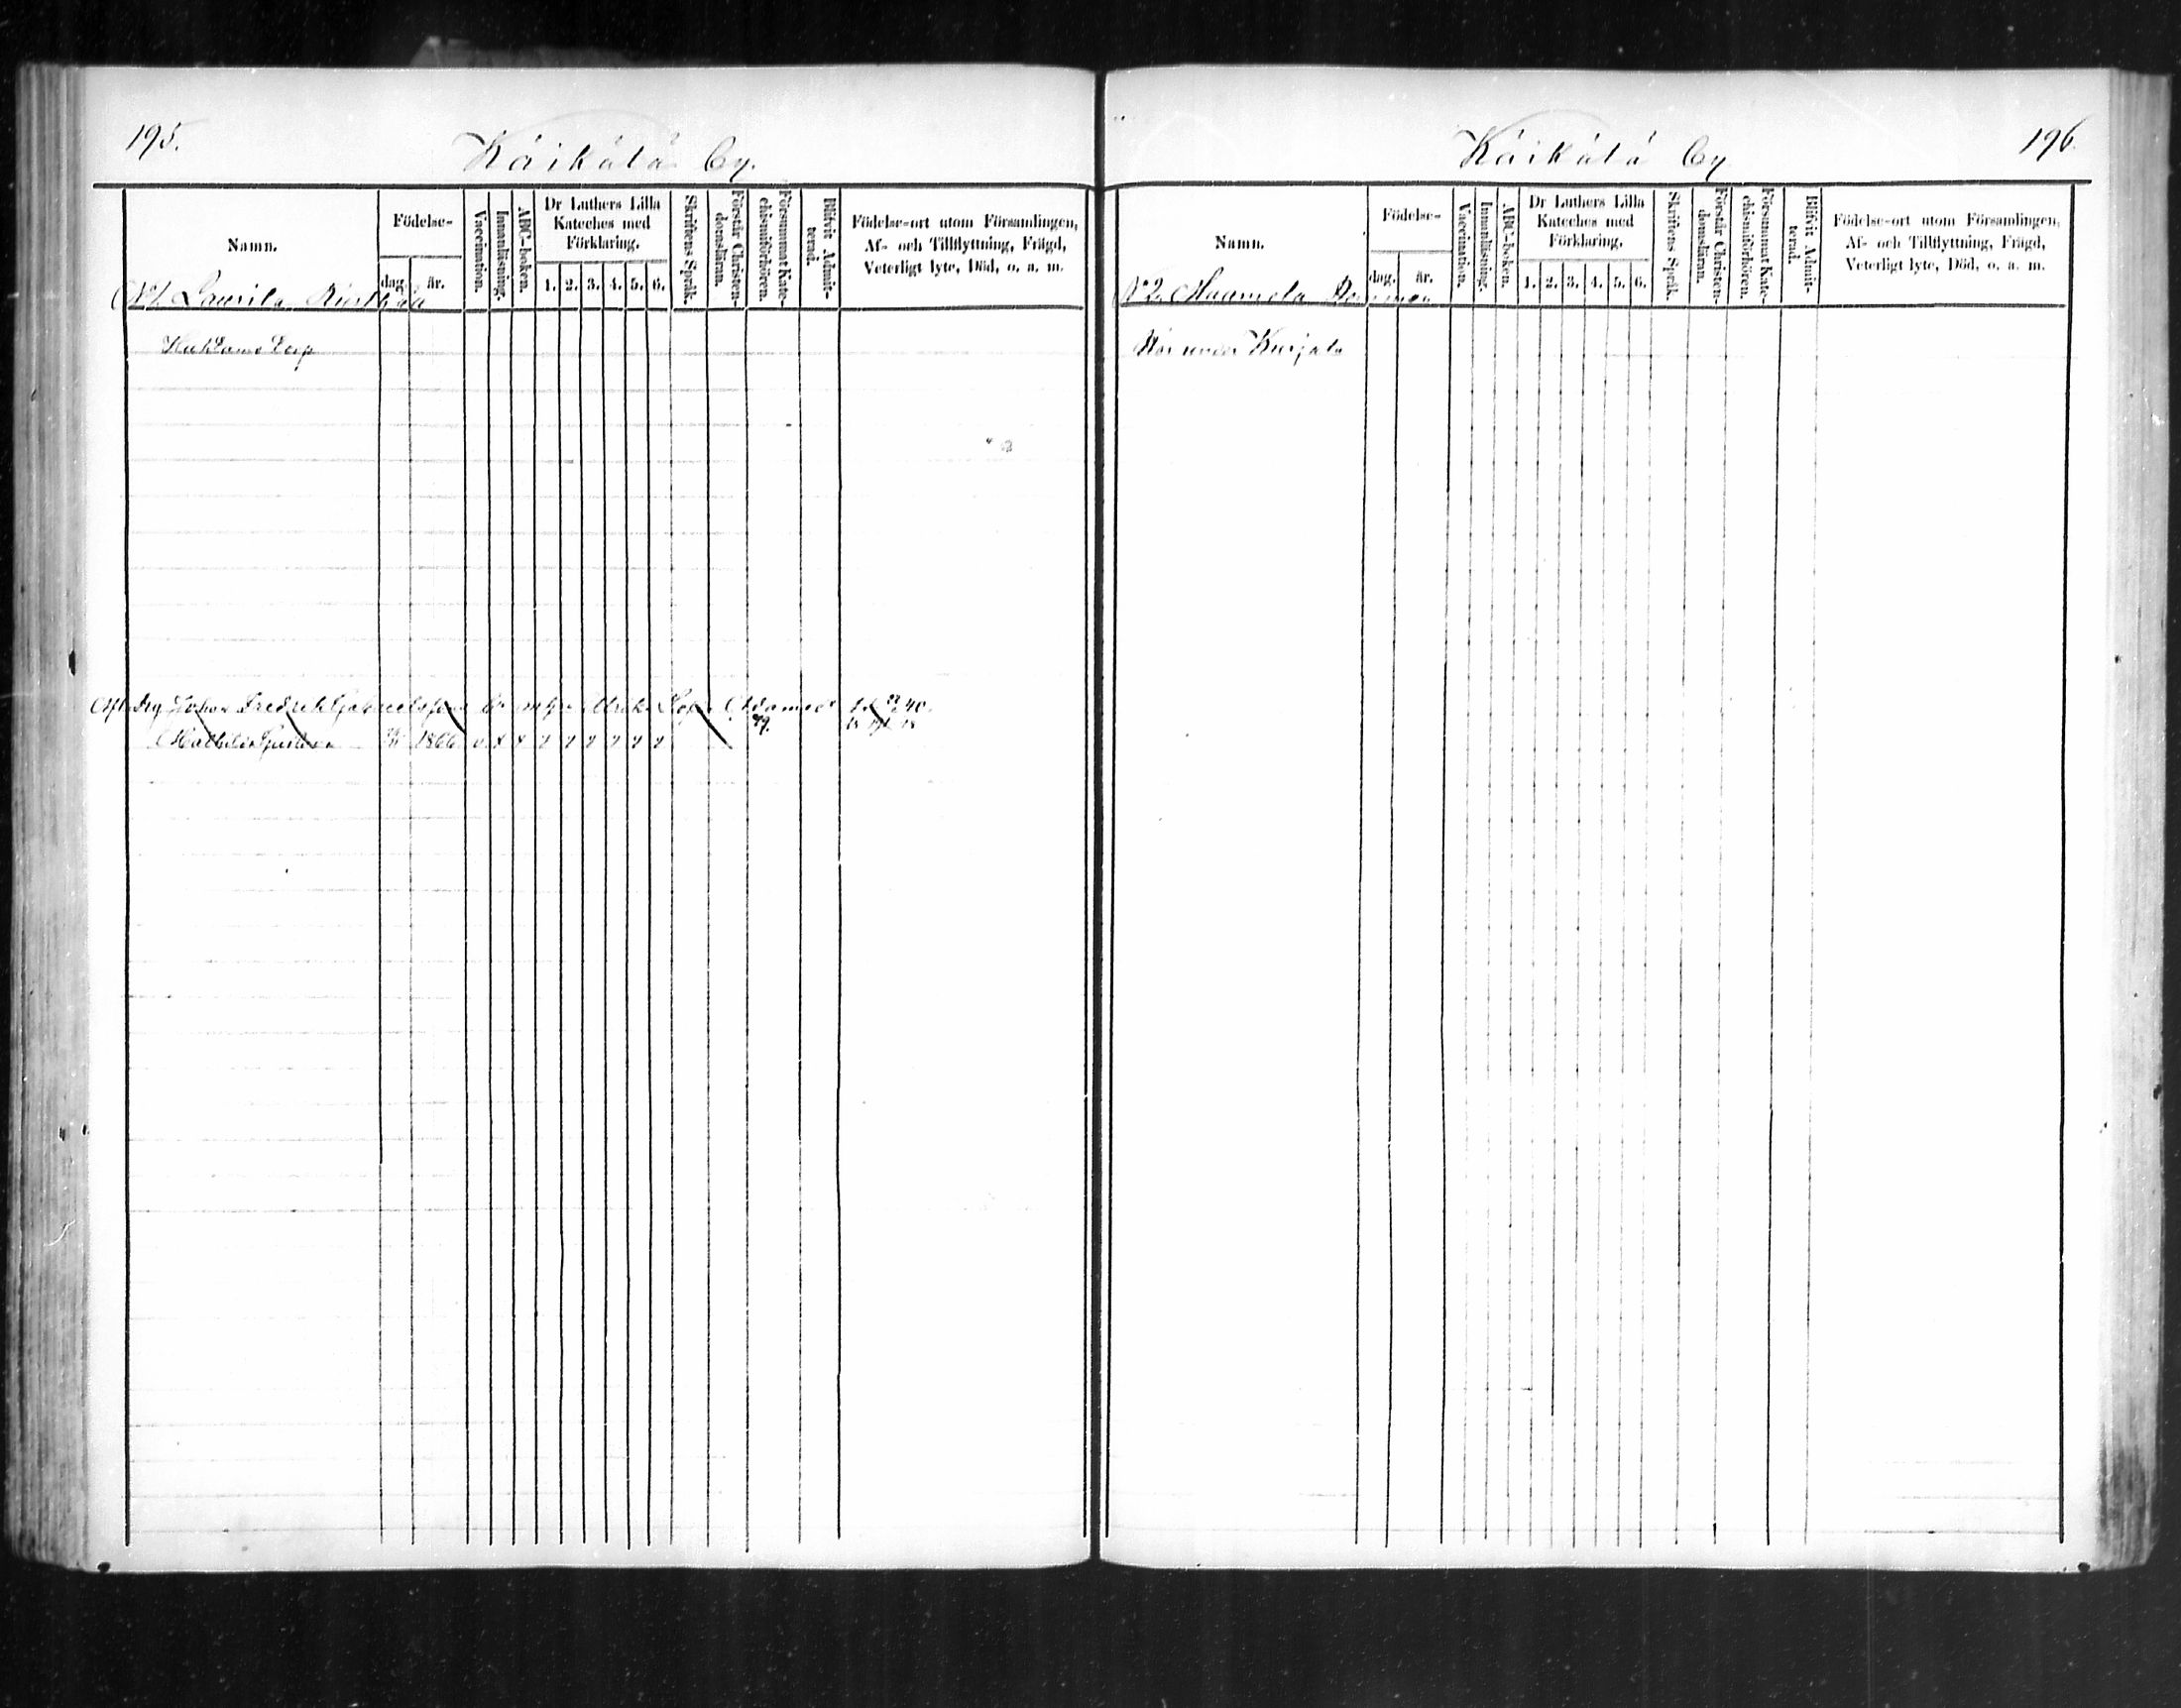 195.
Käikälä by.
Namn.
Födelse-
dag. år.
Vaccination.
Innanläsning.
ABC-boken.
Dr Luthers Lilla
Kateches med
Förklaring.
1. 2. 3. 4. 5. 6.
Skriftens Språk.
Förstår Christen-
domsläran.
Försummat Kate-
chismiförhören.
Blifvit Admit-
terad.
Födelse-ort utom Församlingen,
Af- och Tillflyttning, Frägd,
Veterligt lyte, Död, o. a. m.
N:o 1. Laurila
Torp
Johan Fredrik Gabrielsson
Mathilda 1866
Käikälä by
196.
Namn.
Födelse-
dag. år.
Vaccination.
Innanläsning.
ABC-boken.
Dr Luthers Lilla
Kateches med
Förklaring.
1. 2. 3. 4. 5. 6.
Skriftens Språk.
Förstår Christen-
domsläran.
Försummat Kate-
chismiförhören.
Blifvit Admit-
terad.
Födelse-ort utom Församlingen,
Af- och Tillflyttning, Frägd,
Veterligt lyte, Död, o. a. m.
N:o 2.
under Kurjala